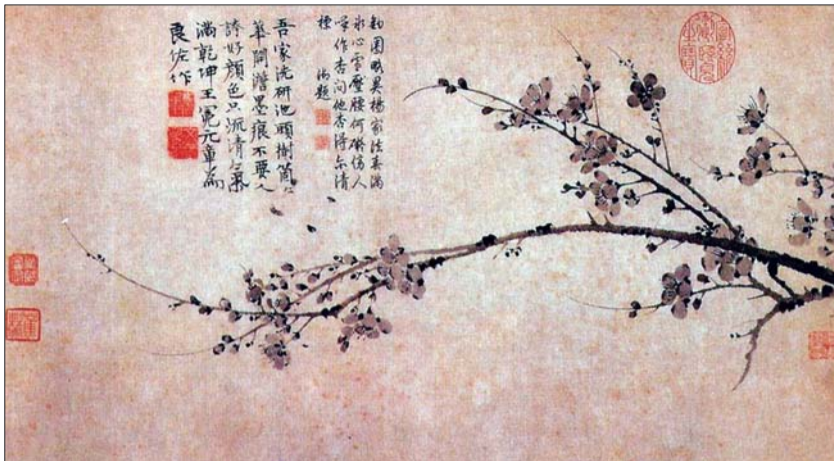 鉤圈略異楊家法春滿
冰心雪壓腰何礙傍人
喚作杏問他杏得尓清
標 御題
吾家洗研池頭樹箇〻
華開澹墨痕不要人
誇好顏色只流清氣
滿乾坤王冕元章為
良佐作